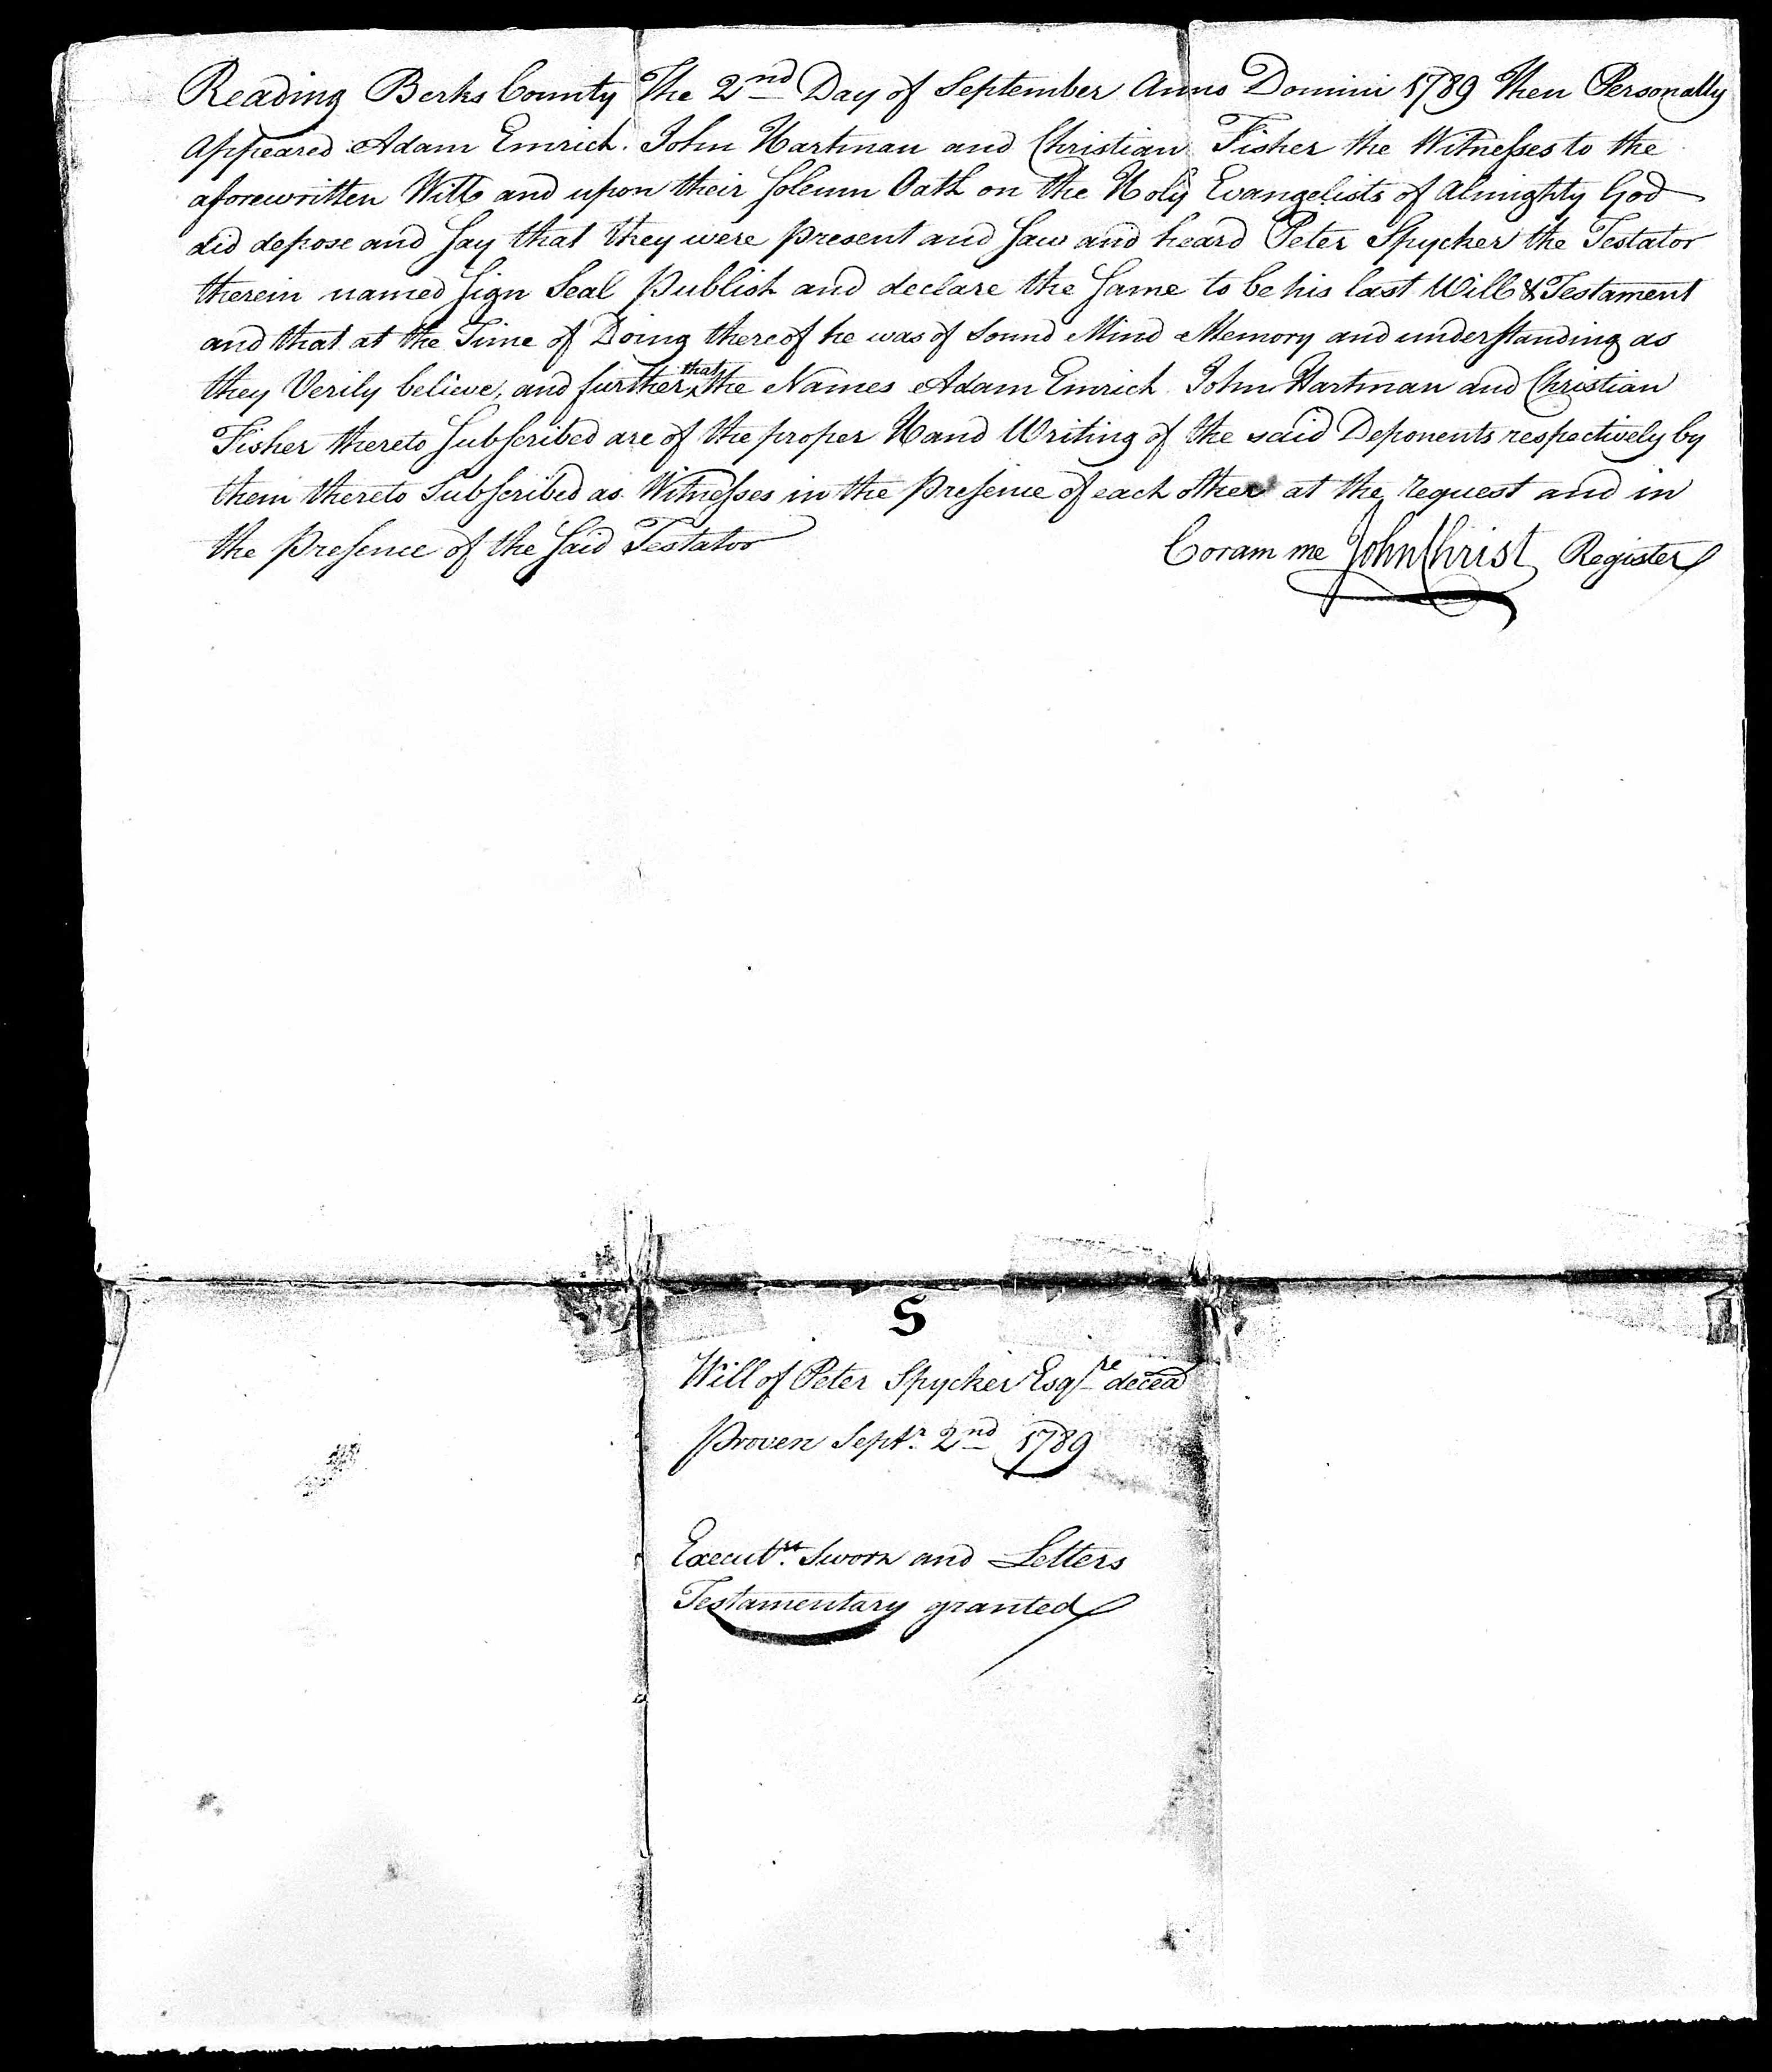 Reading Berks County The 2nd Day of September Anno Domini 1789 Then Personally
Appeared Adam Emrich. John Hartman and Christian Fisher the Witneſses to the
aforewritten Will and upon their ſolemn Oath on the Holy Evangelists of Almighty God
did depose and ſay that they were present and ſaw and heard Peter Spycker the Testator
therein named ſign Seal Publish and declare the ſame to be his last Will & Testament
and that at the Time of Doing thereof he was of Sound Mind Memory and underſtanding as
they Verily believe, and further that the Names Adam Emrich John Hartman and Christian
Fisher thereto ſubſcribed are of the proper Hand Writing of the said Deponents respectively by
them thereto Subſcribed as Witneſses in the Preſence of each other at the request and in
the Preſence of the ſaid Testator
Coram me John Christ Register
S
Will of Peter Spycker Esqre decead
Proven Septr. 2nd 1789
Execut.rs Sworn and Letters
Testamentary granted